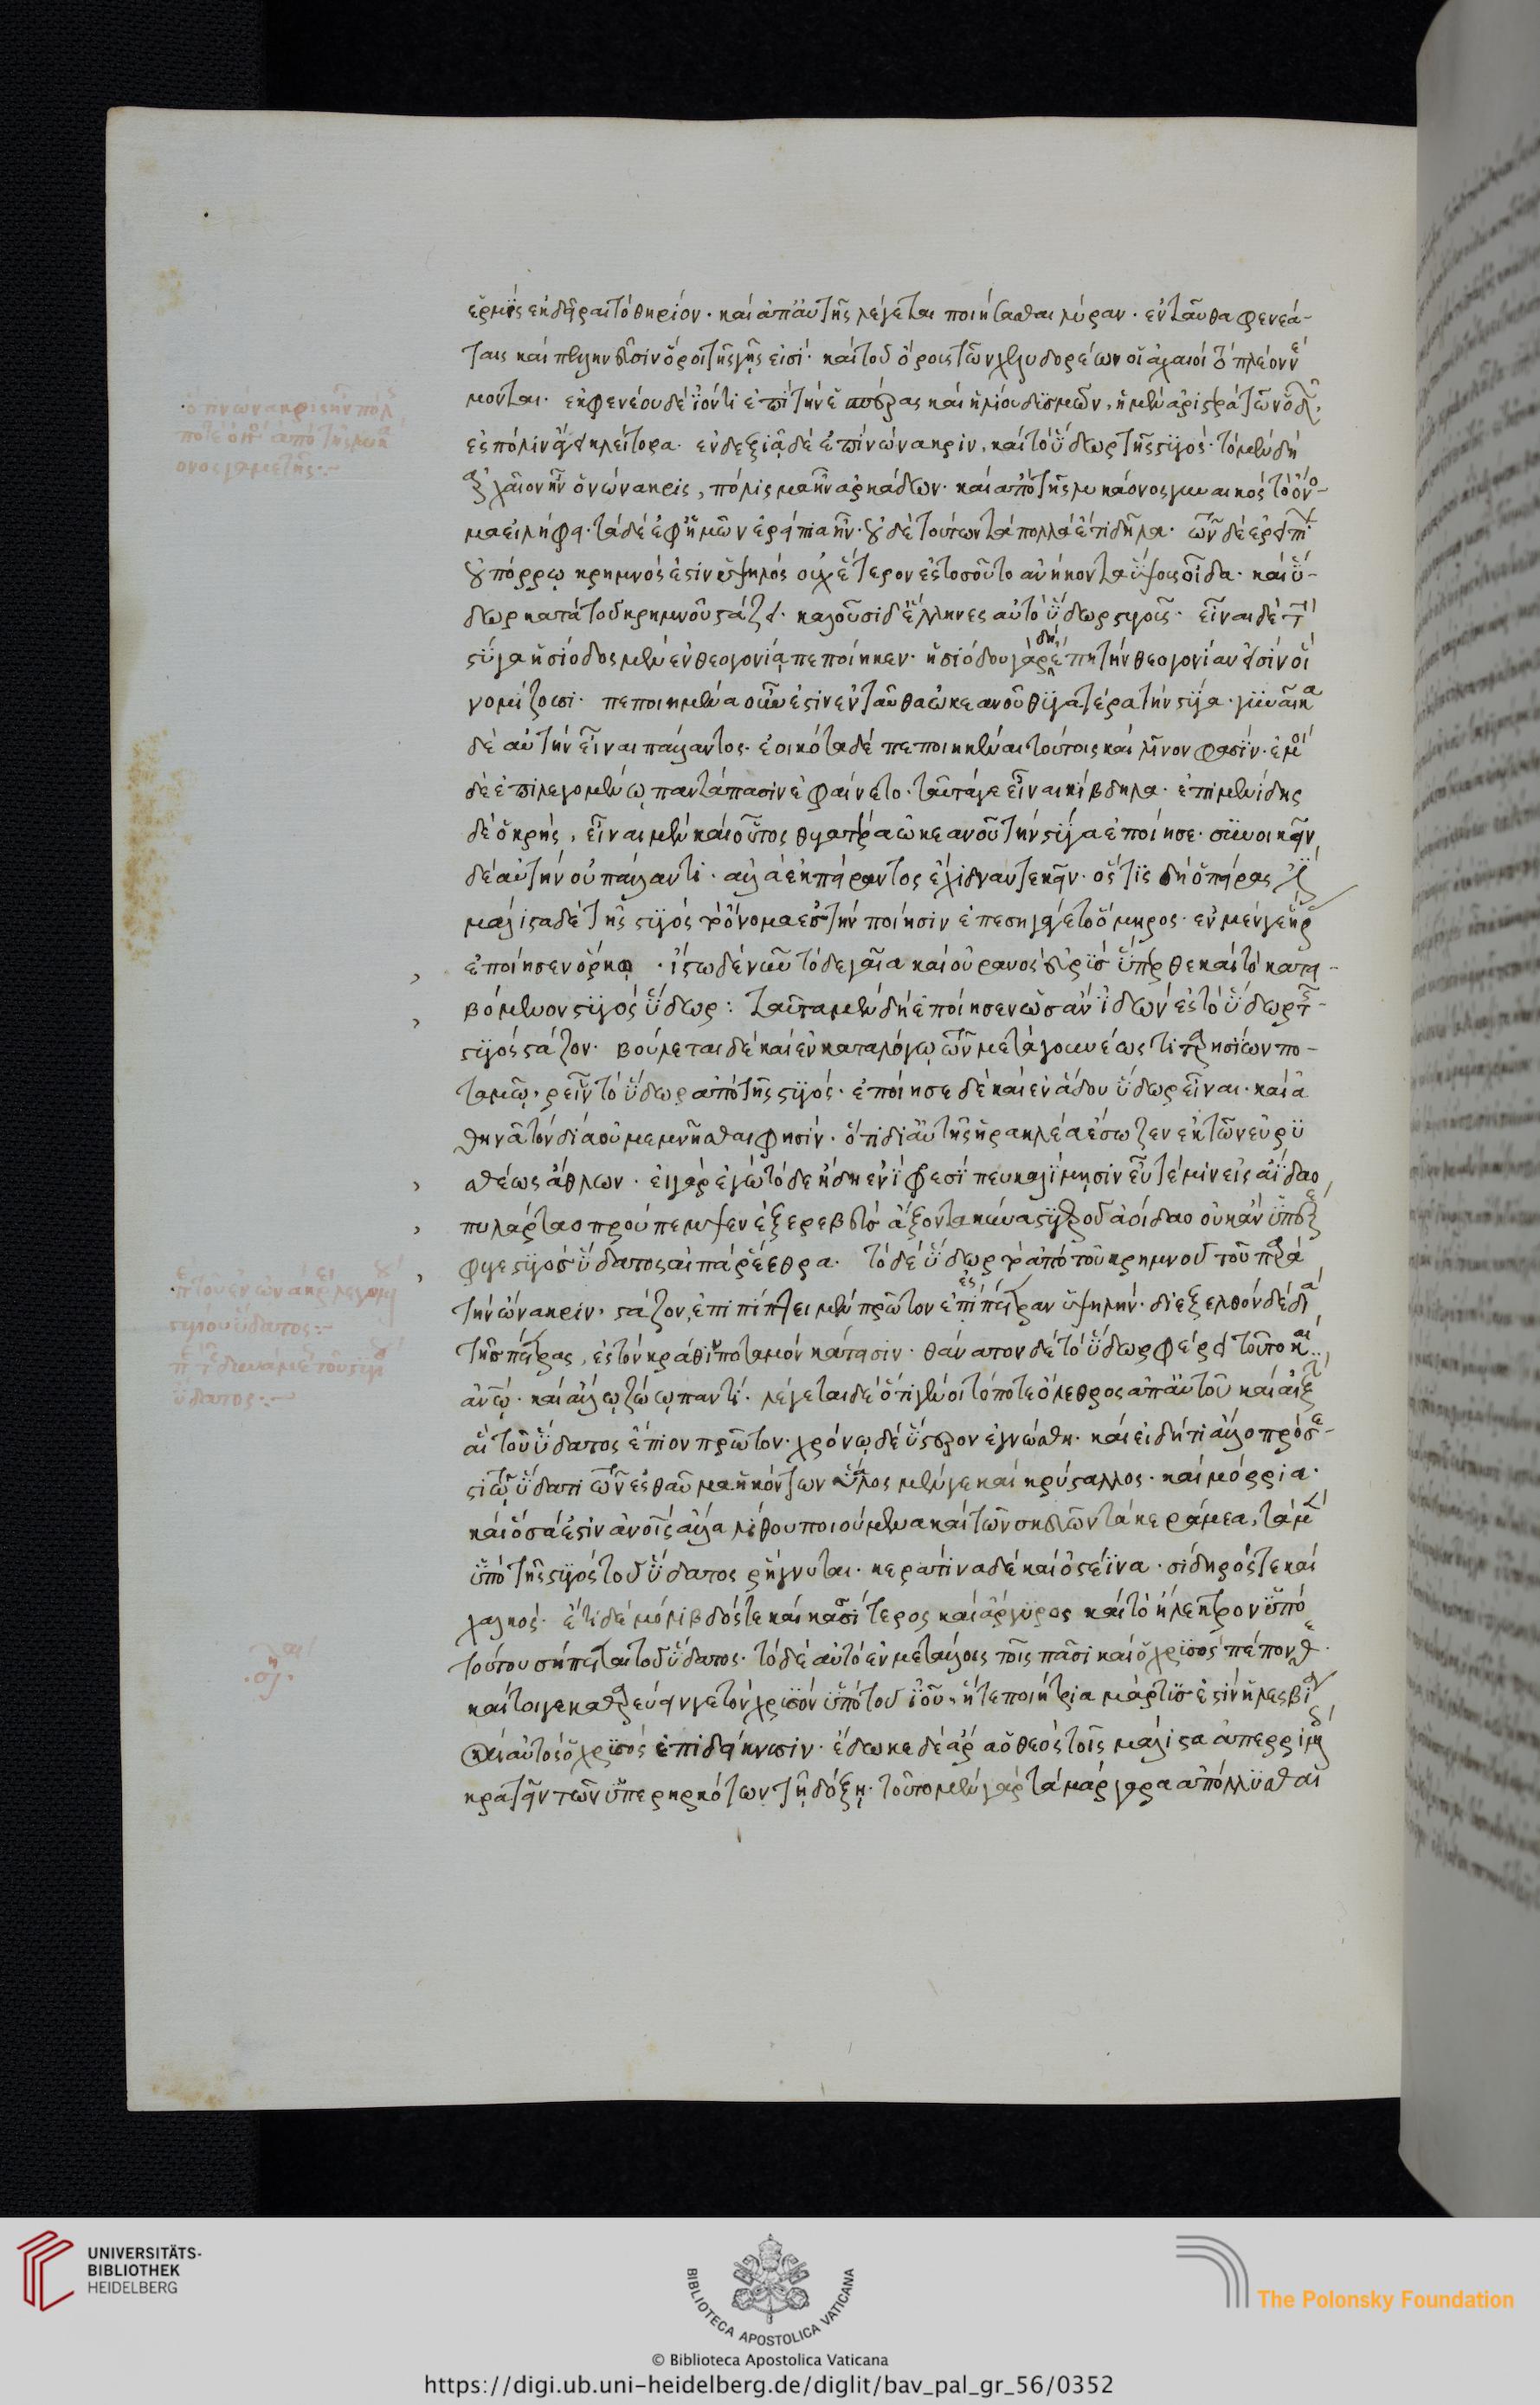 ἑρμῆς ἐκδῆραι τὸ θηρίον · καὶ ἀπ' αὐτῆς λέγεται ποιήσασθαι λύραν · ἐνταῦθα φενεά-
ταις καὶ πελληνεῦσιν ὅροι τῆς γῆς εἰσί · καὶ τοῦ ὄρους τῶν χελυδορέων οἱ ἀχαιοὶ τὸ πλέον νέ
μονται · ἐκ φενεοῦ δὲ ἰόντι ἐπὶ τὴν ἑσπέρας καὶ ἡλίου δυσμῶν, ἡ μὲν ἀριστερὰ τῶν ὁδῶν
ἐς πόλιν ἄγει κλείτορα · ἐν δεξιᾷ δὲ ἐπὶ νώνακριν, καὶ τὸ ὕδωρ τῆς στυγός · τὸ μὲν δὴ
ἀρχαῖον ἦν ὁ νώνακρις, πόλισμα ἦν ἀρκάδων · καὶ ἀπὸ τῆς λυκάονος γυναικὸς τὸ ὄνο-
μα εἰλήφει · τὰ δὲ ἐφ' ἡμῶν ἐρείπια ἦν · οὐδὲ τούτων τὰ πολλὰ ἔτι δῆλα · τῶν δὲ ἐρειπίων
οὐ πόρρω κρημνός ἐστιν ὑψηλός οὐχ ἕτερον ἐς τοσοῦτο ἀνήκοντα ὕψους οἶδα · καὶ ὕ-
δωρ κατὰ τοῦ κρημνοῦ στάζει · καλοῦσι δ' ἕλληνες αὐτὸ ὕδωρ στυγός · εἶναι δὲ τὴν
στύγα ἡσίοδος μὲν ἐν θεογονίᾳ πεποίηκεν · ἡσιόδου γὰρ δὴ ἔπη τὴν θεογονίαν εἰσὶν οἳ
νομίζουσι · πεποιημένα οὖν ἐστιν ἐνταῦθα ὠκεανοῦ θυγατέρα τὴν στύγα · γυναῖκα
δὲ αὐτὴν εἶναι πάλλαντος · ἐοικότα δὲ πεποιηκέναι τούτοις καὶ λῖνον φασίν · ἐμοὶ
δὲ ἐπιλεγομένῳ παντάπασιν ἐφαίνετο · ταῦτά γε εἶναι κίβδηλα · ἐπιμενίδης
δὲ ὁ κρής, εἶναι μὲν καὶ οὗτος θυγατέρα ὠκεανοῦ τὴν στύγα ἐποίησε · συνοικεῖν
δὲ αὐτὴν οὐ πάλλαντι · ἀλλὰ ἐκ πείραντος ἔχιδναν τεκεῖν · ὅστις δὴ ὁ πείρας ἐστί
μάλιστα δὲ τῆς στυγὸς τὸ ὄνομα ἐς τὴν ποίησιν ἐπεσηγάγετο ὅμηρος · ἐν μέν γε ἥρας
ἐποίησεν ὅρκῳ · ἴστω δὲ νῦν τόδε γαῖα καὶ οὐρανὸς εὐρὺς ὕπερθε καὶ τὸ κατει-
βόμενον στυγὸς ὕδωρ : ταῦτα μὲν δὴ ἐποίησεν ὡσὰν ἰδὼν ἐς τὸ ὕδωρ τῆς
στυγὸς στάζον · βούλεται δὲ καὶ ἐν καταλόγῳ τῶν μετὰ γουνέως τιταρησίων πο-
ταμῷ · ῥεῖν τὸ ὕδωρ ἀπὸ τῆς στυγός · ἐποίησε δὲ καὶ ἐν ἅδου ὕδωρ εἶναι · καὶ ἀ
θηνᾶ τὸν δία οὐ μεμνῆσθαι φησίν · ὅτι δι' αὐτῆς ἡρακλέα ἔσωζεν ἐκ τῶν εὐρυ
σθέως ἄθλων · εἰ γὰρ ἐγὼ τόδε ᾔδη ἐνὶ φρεσὶ πευκαλίμῃσιν εὖτέ μιν εἰς ἀΐδαο
πυλάρταο προύπεμψεν ἐξ ἐρέβευς ἄξοντα κύνα στυγεροῦ ἀΐδαο οὐκ ἂν ὑπεξέ
φυγε στυγὸς ὕδατος αἰπὰ ῥέεθρα · τὸ δὲ ὕδωρ τὸ ἀπὸ τοῦ κρημνοῦ τοῦ παρὰ
τὴν νώνακριν · στάζον, ἐπιπίπτει μὲν πρῶτον ἐς πέτραν ὑψηλήν · διεξελθὸν δὲ διὰ
τῆς πέτρας, ἐς τὸν κρᾶθιν ποταμὸν κάτεισιν · θάνατον δὲ τὸ ὕδωρ φέρει τοῦτο καὶ
ἀνθρώπῳ · καὶ ἄλλῳ ζώῳ παντί · λέγεται δὲ ὅτι γένοιτό ποτε ὄλεθρος ἀπ' αὐτοῦ καὶ αἰξὶν
αἳ τοῦ ὕδατος ἔπιον πρῶτον · χρόνῳ δὲ ὕστερον ἐγνώσθη · καὶ εἰ δή τι ἄλλο πρόσε-
στι τῷ ὕδατι τῶν ἐς θαῦμα ἡκόντων ὕαλος μέν γε καὶ κρύσταλλος · καὶ μόρρια ·
καὶ ὅσα ἐστὶν ἀνθρώποις ἄλλα λίθου ποιούμενα καὶ τῶν σκευῶν τὰ κεράμεα, τὰ μὲν
ὑπὸ τῆς στυγὸς τοῦ ὕδατος ῥήγνυται · κεράτινα δὲ καὶ ὀστέϊνα · σίδηρός τε καὶ
χαλκός · ἔτι δὲ μόλιβδός τε καὶ κασίτερος καὶ ἄργυρος καὶ τὸ ἤλεκτρον ὑπὸ
τούτου σήπεται τοῦ ὕδατος · τὸ δὲ αὐτὸ ἐν μετάλλοις τοῖς πᾶσι καὶ ὁ χρυσὸς πέπονθε ·
καίτοι γε καθαρεύειν γε τὸν χρυσὸν ὑπὸ τοῦ ἰοῦ · ἥ τε ποιήτρια μάρτυς ἐστὶν ἡ λεσβία
καὶ αὐτὸς ὁ χρυσὸς ἐπιδείκνυσιν · ἔδωκε δὲ ἄρα ὁ θεὸς τοῖς μάλιστα ἀπερριμμένοις
κρατεῖν τῶν ὑπερηρκότων τῇ δόξῃ · τοῦτο μὲν γὰρ τὰ μάργαρα ἀπόλλυσθαι
UNIVERSITÄTS-
BIBLIOTHEK
HEIDELBERG
BIBLIOTECA APOSTOLICA VATICANA
The Polonsky Foundation
© Biblioteca Apostolica Vaticana
https://digi.ub.uni-heidelberg.de/diglit/bav_pal_gr_56/0352